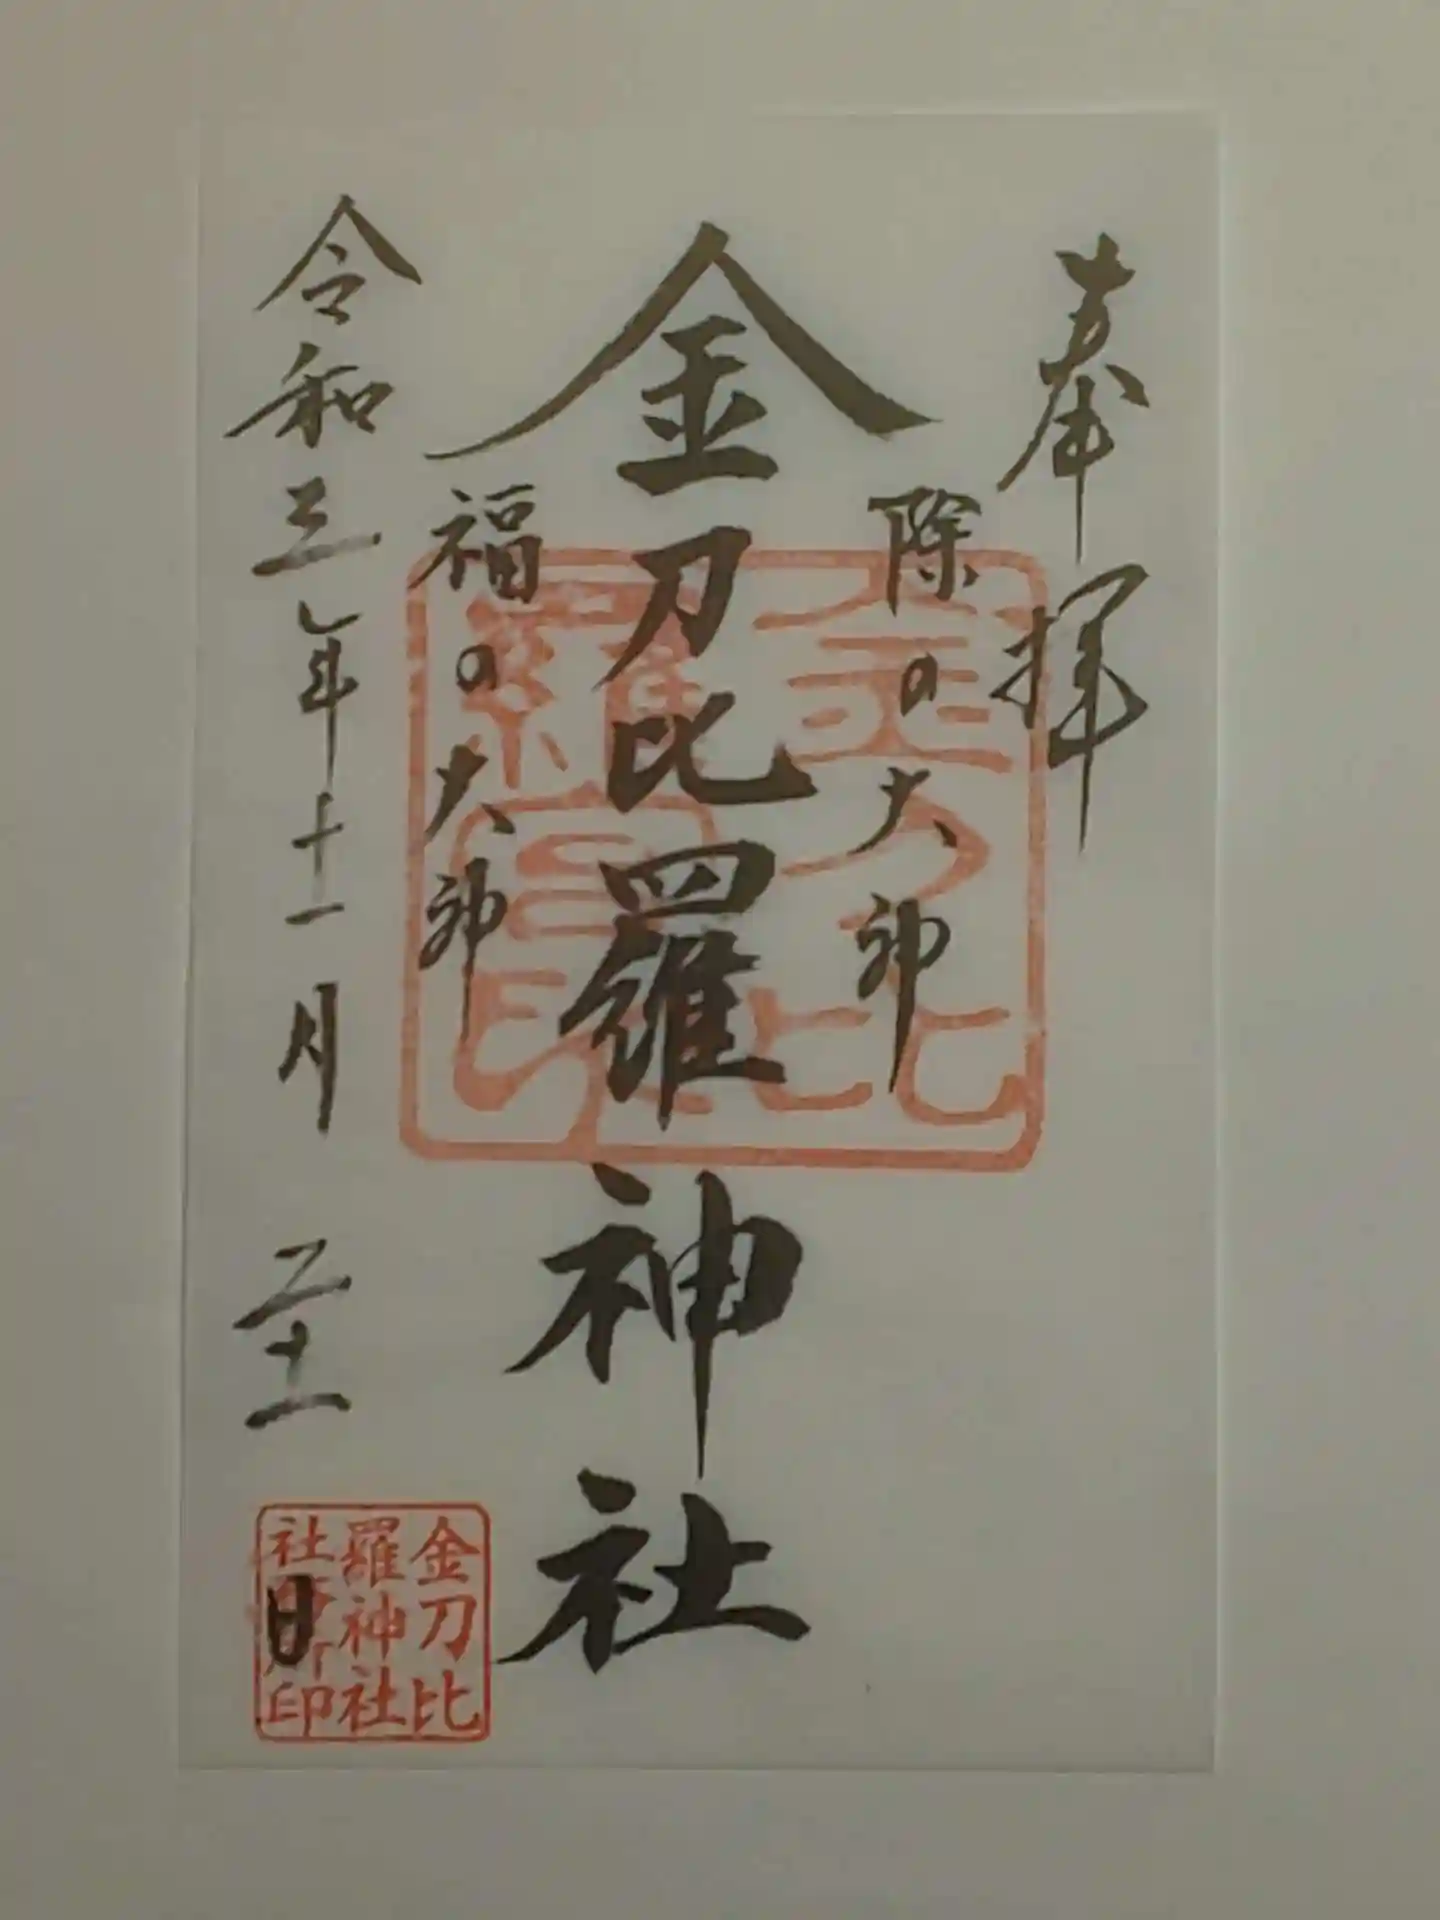 奉拝
除の大神
金刀比羅神社
福の大神
令和三年十一月二十一日
金刀比
羅宮印
金刀比
羅神社
社務所印